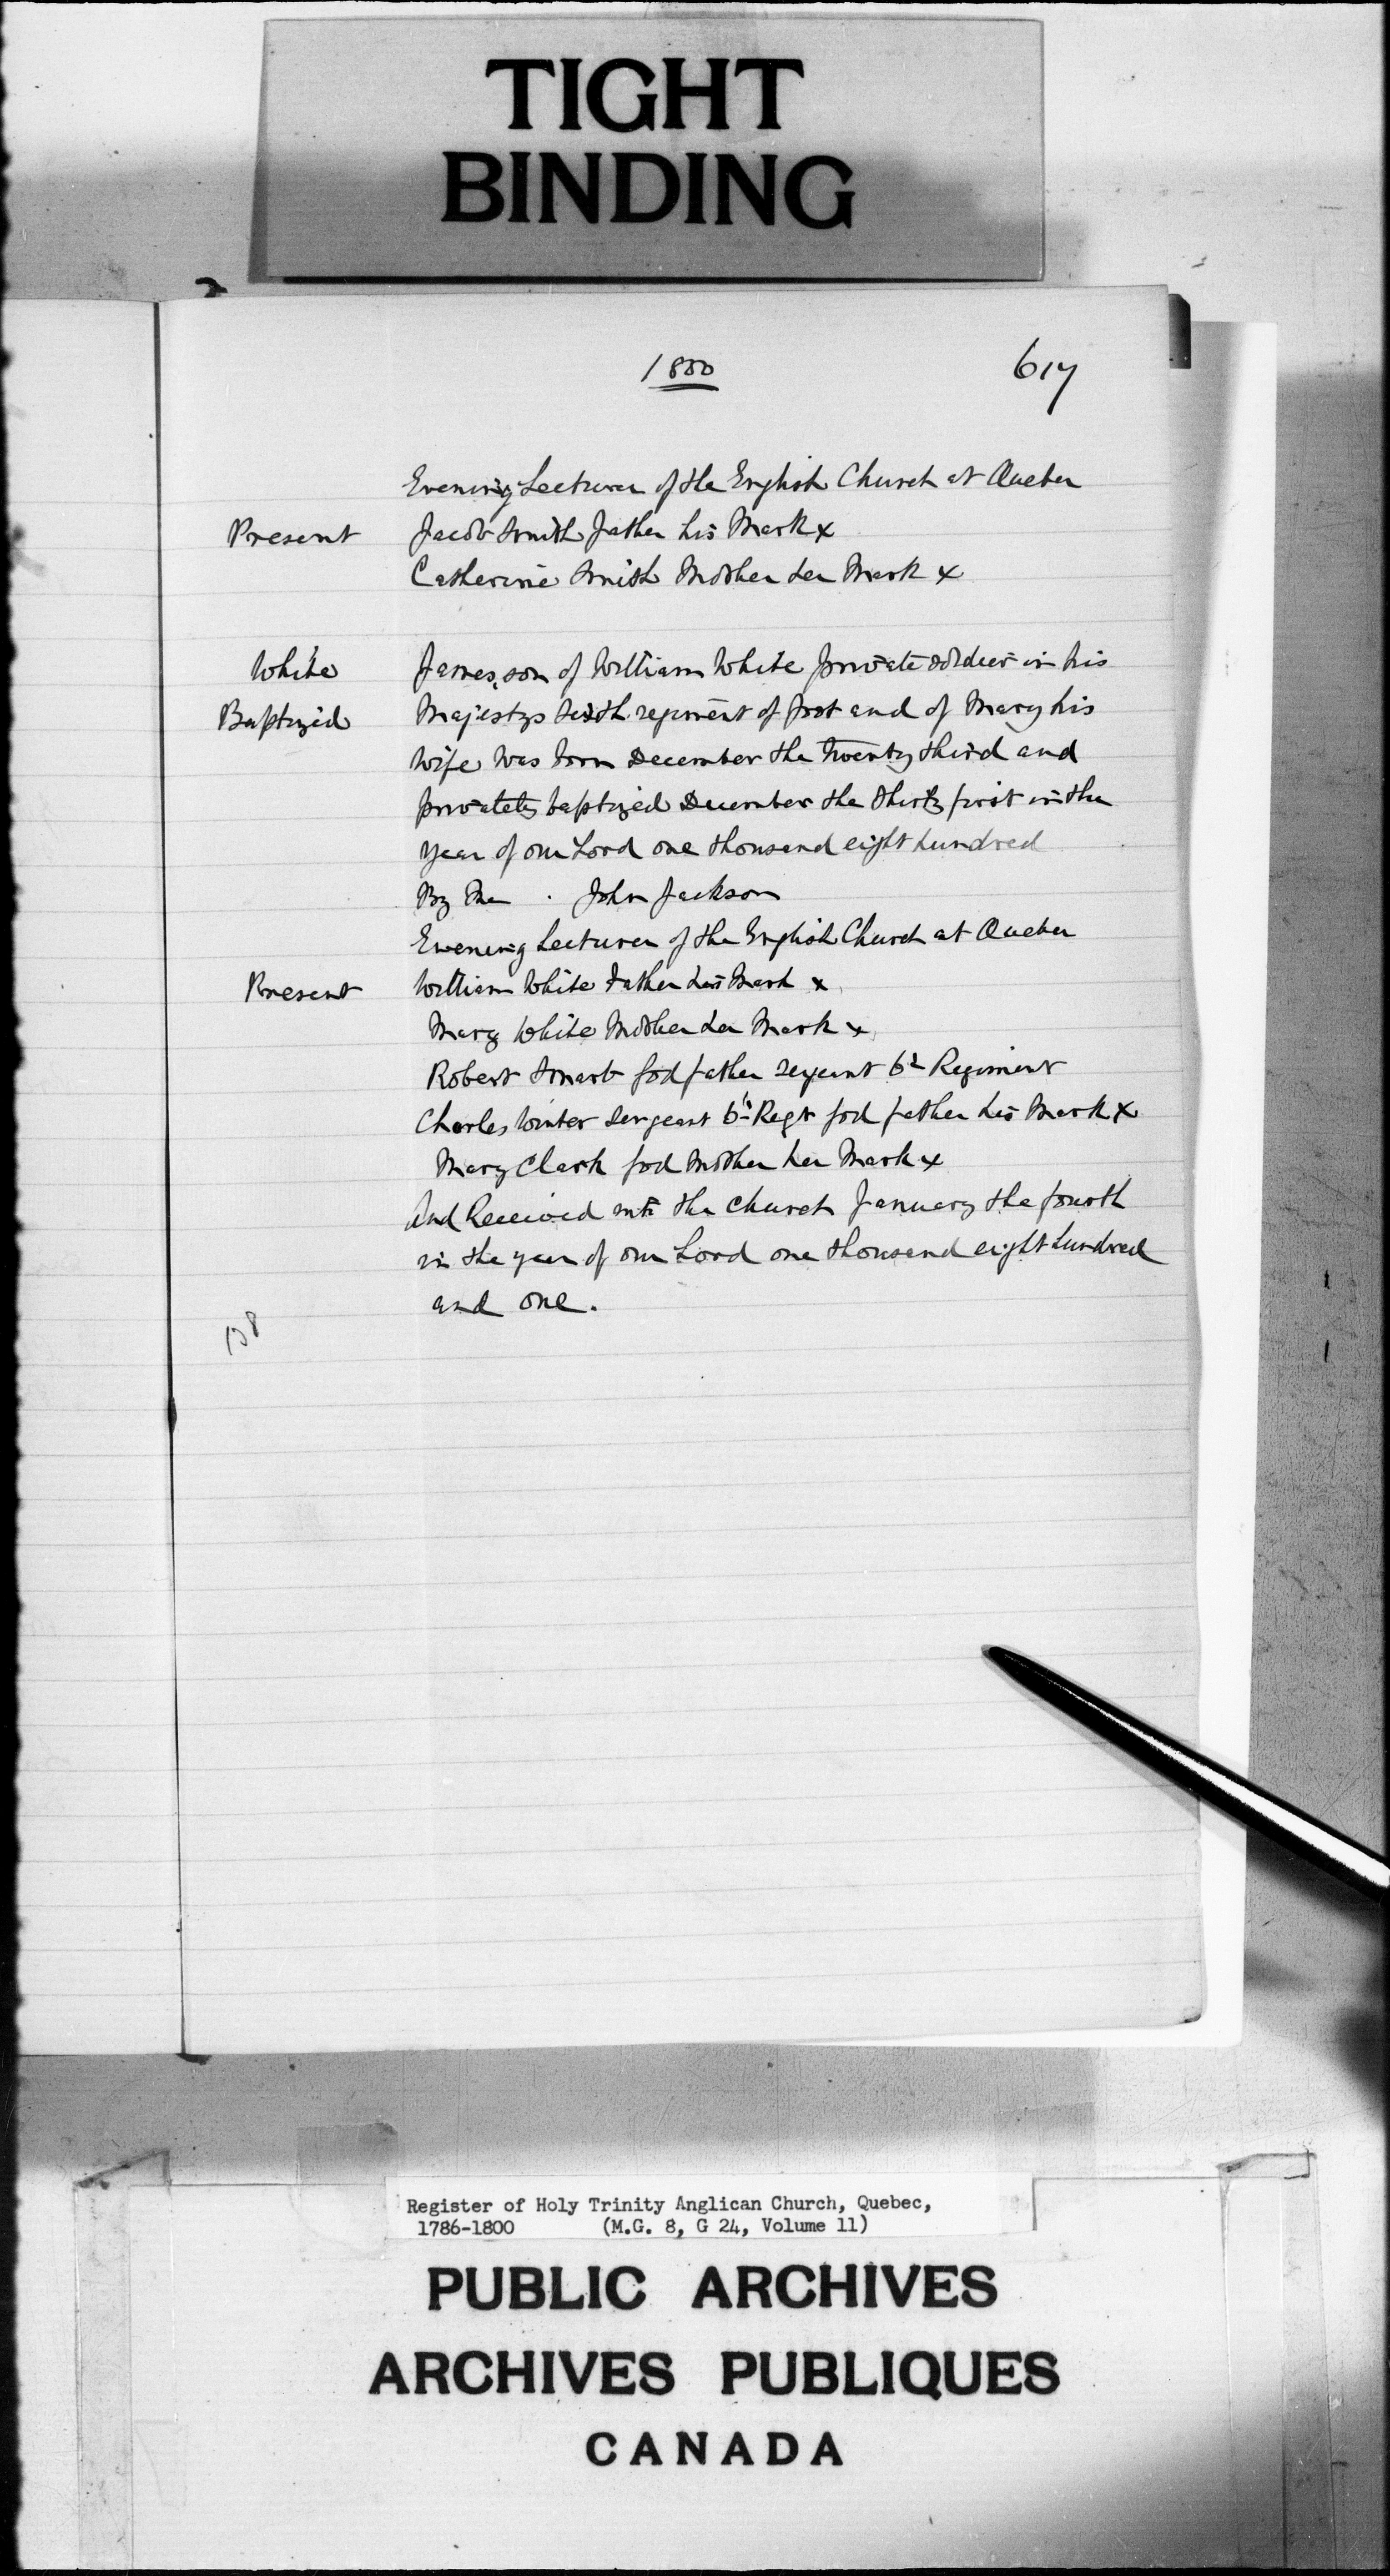 TIGHT
BINDING
1800 617
Evening Lecturer of the English Church at Quebec
Present Jacob Smith father his Mark x
Catherine Smith Mother her Mark x
White James, son of William White private soldier in his
Baptized Majestys sixth regiment of foot and of Mary his
wife was born December the twenty third and
privately baptized December the thirty first in the
year of our Lord one thousand eight hundred
By Me . John Jackson
Evening Lecturer of the English Church at Quebec
Present William White father his Mark x
Mary White Mother her Mark x
Robert Smart God father sergeant 6th Regiment
Charles Winter sergeant 6th Regt God father his Mark x
Mary Clark God Mother her Mark x
And Received into the Church January the fourth
in the year of our Lord one thousand eight hundred
and one.
138
Register of Holy Trinity Anglican Church, Quebec,
1786-1800 (M.G. 8, G 24, Volume 11)
PUBLIC ARCHIVES
ARCHIVES PUBLIQUES
CANADA